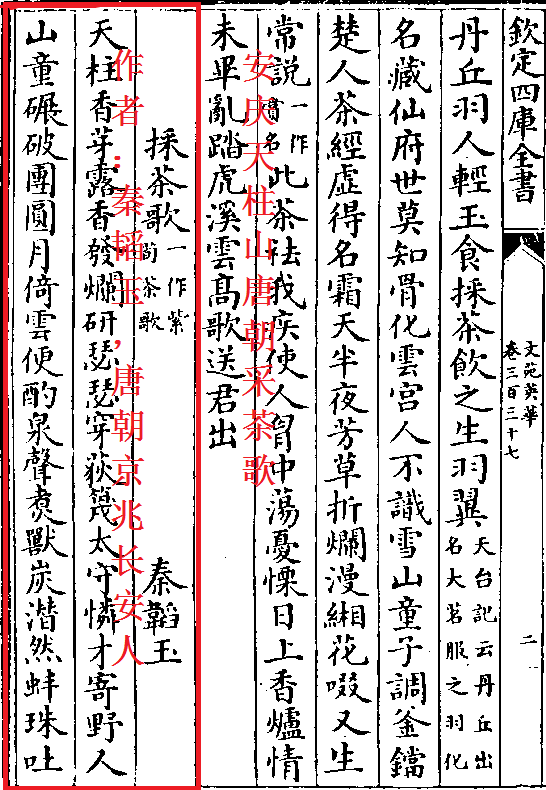 欽定四庫全書
文苑英華
卷三百三十七
二
丹丘羽人輕玉食採茶飲之生羽翼天台記云丹丘出名大茗服之羽化
名藏仙府世莫知骨化雲宫人不識雪山童子調金鐺
楚人茶經虛得名霜天半夜芳草折爛漫緗花啜又生
常說一作賞名此茶祛我疾使人胷中蕩憂慄日上香爐情
未畢亂踏虎溪雲髙歌送君出
安庆天柱山唐朝采茶歌
採茶歌一作紫筍茶歌
秦韜玉
作者：秦韬玉,唐朝京兆长安人
天柱香芽露香發爛研瑟瑟穿荻篾太守憐才寄野人
山童碾破團圓月倚雲便酌泉聲煑獸炭潜然蚌珠吐